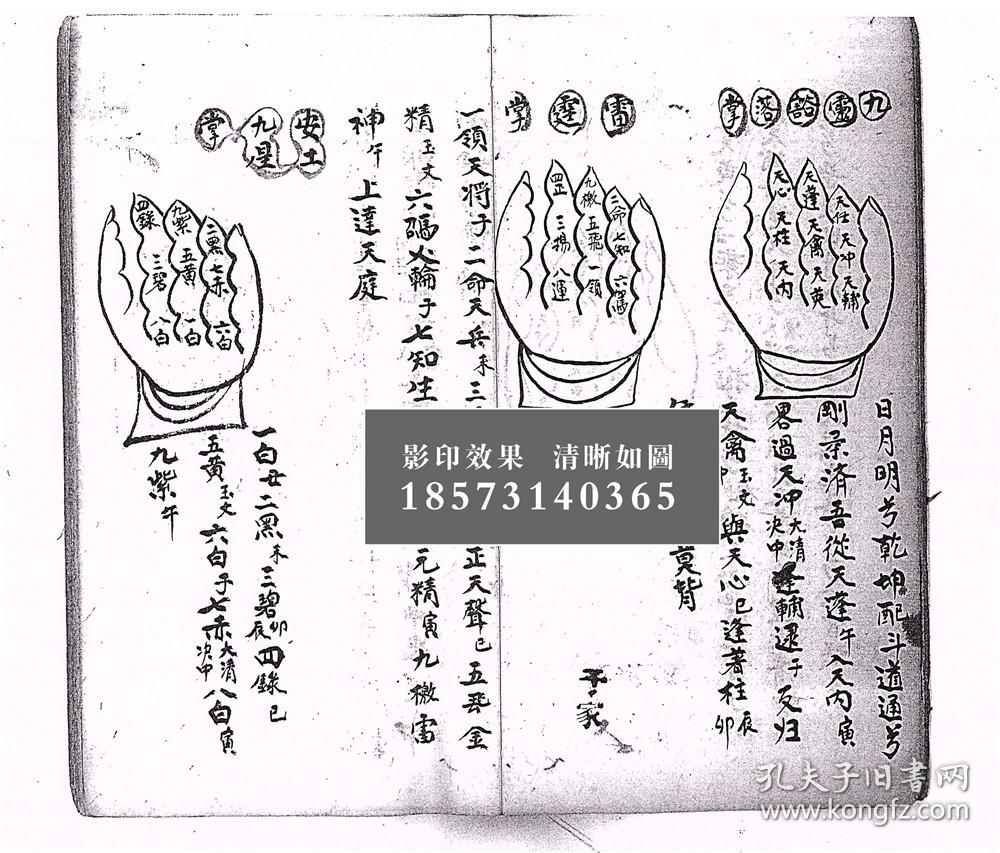 九靈豁落掌
天任 天冲 天輔
天蓬 天禽 天英
天心 天柱 天内
日月明兮乾坤配斗道通兮
剛柔済吾從天蓬午入天内寅
畧過天冲大清決中逢輔逯子反归
天禽玉文中與天心巳逢著柱辰卯
莫背
雷霆掌
二命 七知 六
九橶 五飛 一領
四正 三揚 八運
一領天将子二命天兵未三
正天聲巳五飛金
精玉文六 火輪子七知生
元精寅九橶雷
神午上達天庭
安土九星掌
二黑 七赤 六白
九紫 五黄 一白
四録 三碧 八白
一白丑二黑未三碧卯辰四録巳
五黄玉文六白子七赤大清決中八白寅
九紫午
影印效果 清晰如圖
18573140365
孔夫子旧書网
www.kongfz.com